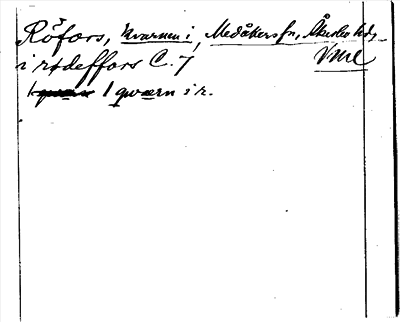 Röfors, kvarnen i, Medåkers sn, Åkerbo hd,
Vml
i rødeffors C. 7
1 qwærn i r.